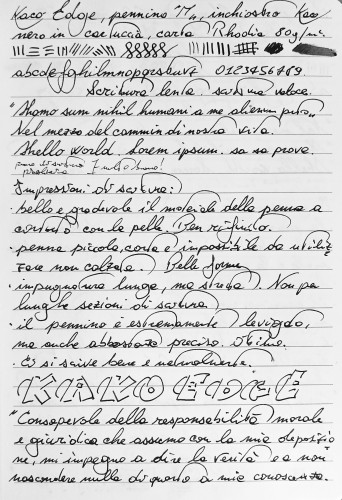 Kaco Edge, pennino "M", inchiostro Kaco
nero in cartuccia, carta Rhodia 80g/mq
abcdefghilmnopqrstuvz 0123456789.
Scrittura lenta, scrittura veloce.
"Homo sum nihil humani a me alienum puto"
Nel mezzo del cammin di nostra vita.
Hello world. Lorem ipsum. sa sa prova.
prova di scrittura
Impressioni di scrittura:
· bello e gradevole il materiale della penna a
contatto con la pelle. Ben rifinito.
· penna piccola, corta e impossibile da utiliz
zare non calzata. Belle forme
· impugnatura lunga, ma stretta. Non per
lunghe sezioni di scrittura
· il pennino è estremamente levigato,
ma anche abbastanza preciso. Ottimo.
· Ci si scrive bene e velocemente.
KAKO EDGE
"Consapevole della responsabilità morale
e giuridica che assumo con la mia deposizio
ne, mi impegno a dire la verità e a non
nascondere nulla di quanto a mia conoscenza.